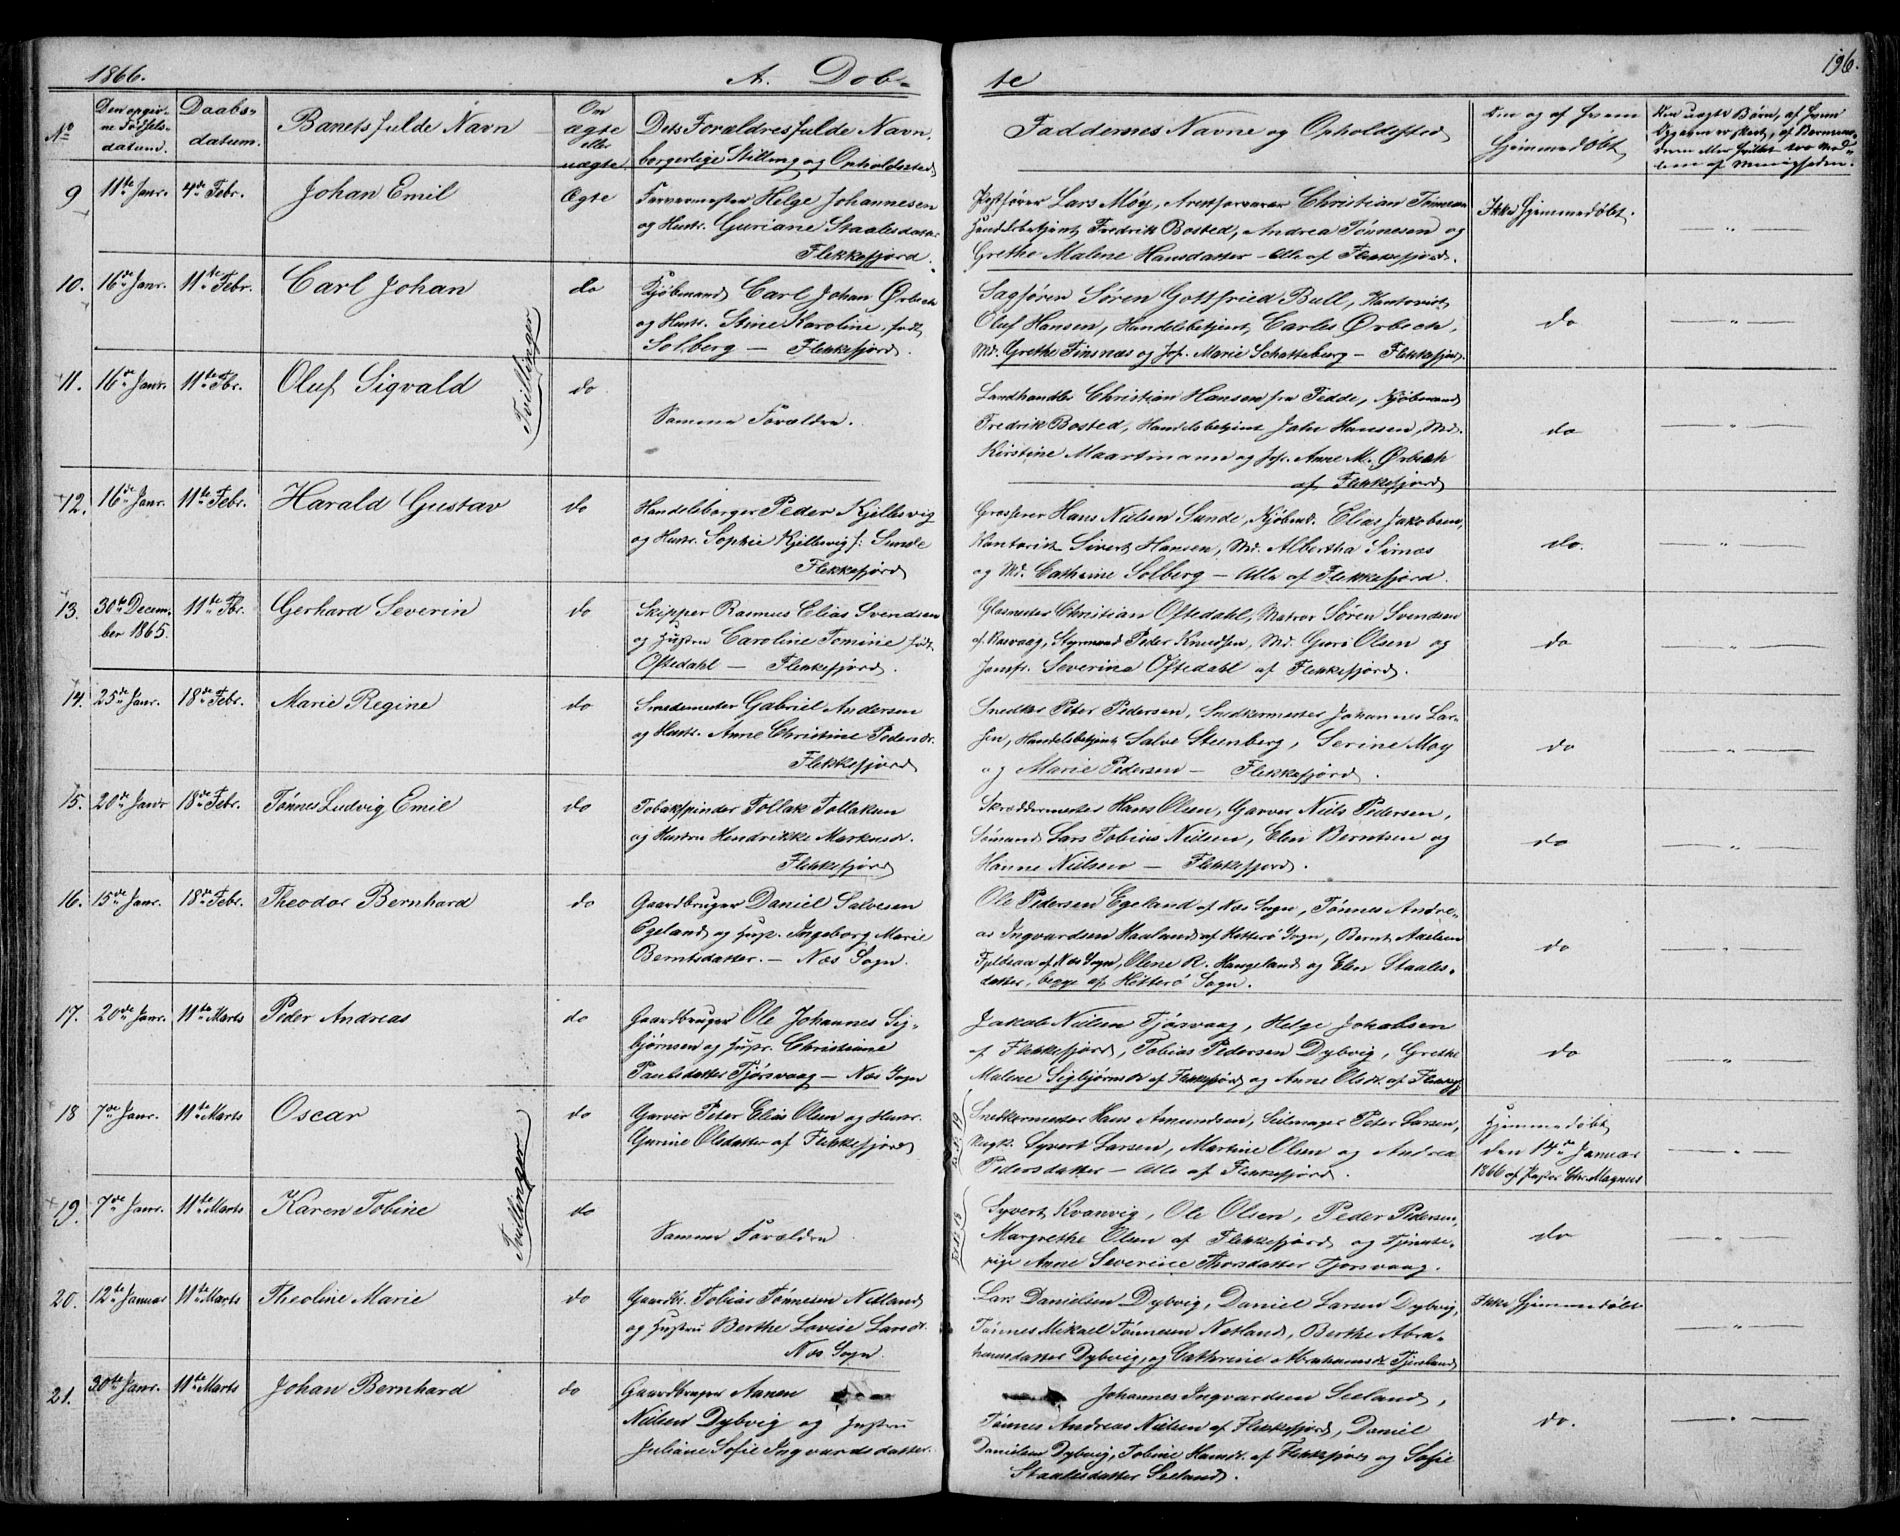 1866.
A. Dob-
te
196.
No
Den opgiv-
ne Fødsels-
datum.
Daabs-
datum.
Barnets fulde Navn
Om
ægte
eller
uægte
Dets Forældres fulde Navn,
borgerlige Stilling og Opholdssted
Faddernes Navne og Opholdssted
Om og af hvem
Hjemmedøbt
9 11te Janr. 4de Febr. Johan Emil Ægte
Farvermester Helge Johannesen
og Hustr. Guriane Staalesdatter
Flekkefjord.
Lars Moy, Christian Tønnesen
Handelsbetjent Fredrik Bosted, Andrea Tønnesen og
Grethe Malene Hansdatter - Alle af Flekkefjord.
Ikke Hjemmedøbt.
— " —
10. 16de Janr. 11te Febr. Carl Johan do
Kjøbmand Carl Johan Ørbech
og Hustr. Stine Karoline, født
Solberg — Flekkefjord.
Sagfører Søren Gottfried Bull, Kontorist
Oluf Hansen, Handelsbetjent Carles Ørbech,
Md. Grethe Finsnæs og Jof. Marie Schatteburg — Flekkefjord.
do
— " —
Tvillinger
11. 16de Janr. 11te Fbr. Oluf Sigvald do
Samme Forældre.
Landhandler Christian Hansen fra Fedde, Kjøbmand
Fredrik Bosted, Handelsbetjent John Hansen, Md.
Kirstine Maartmann og Jof. Anne M. Ørbech
af Flekkefjord
do
— " —
12. 16de Janr. 11te Febr. Harald Gustav do
Handelsborger Peder Kjellesvig
og Hustr. Sophie Kjellesvig f: Sunde
Flekkefjord
Grosserer Hans Nielsen Sunde, Kjøbmd. Elias Jakobsen,
Kontorist Sivert Hansen, Md. Albertha Sirnæs
og Md. Cathrine Solberg — Alle af Flekkefjord.
do.
— " —
13. 30te Decem- 11te Fbr. Gerhard Severin do
ber 1865.
Skipper Rasmus Elias Svendsen
og Hustru Caroline Tomine født
Oftedahl — Flekkefjord.
Glasmester Christian Oftedahl, Matros Søren Svendsen
af Rasvaag, Styrmand Peder Knudsen, Md. Guro Olsen og
Jomfr. Severina Oftedahl af Flekkefjord.
do
— " —
14. 25de Janr. 18de Febr. Marie Regine do
Smedemester Gabriel Andersen
og Hustr. Anne Christine Pedersdr.
Flekkefjord
Snedker Peter Pedersen, Snedkermester Johannes Lar-
sen, Handelsbetjent Salve Steenberg, Serine Moy
og Marie Pedersen — Flekkefjord.
do
— " —
15. 20de Janr 18de Febr. Tønnes Ludvig Emil do
Tobakspinder Tollak Tollaksen
og Hustru Hendrikke Markusdr.
Flekkefjord
Skræddermester Hans Olsen, Garver Niels Pedersen,
Sømand Lars Tobias Nielsen, Elen Berntsen og
Hanne Nielsen — Flekkefjord.
do
— " —
16. 15de Janr. 18de Febr. Theodor Bernhard do
Gaardbruger Daniel Salvesen
Egeland og Hustr. Ingeborg Marie
Berntsdatter. — Næs Sogn.
Ole Pedersen Egeland af Næs Sogn, Tønnes Andre-
as Ingvardsen Haaland af Hitterø Sogn, Bernt Axelsen
Fjeldsaa af Næs Sogn, Olene R. Haugeland og Elen Staales-
datter, begge af Hitterø Sogn.
do
— " —
17. 20de Janr. 11te Marts Peder Andreas do
Gaardbruger Ole Johannes Sig-
bjørnsen og Hustr. Christiane
Paulsdatter Tjørsvaag — Næs Sogn
Jakob Nielsen Tjørsvaag, Helge Johansen
af Flekkefjord, Tobias Pedersen Dybvig, Grethe
Malene Sigbjørnsdr. af Flekkefjord og Anne Olsdr. af Flekkefj
do
— " —
18 7de Janr. 11te Marts Oscar do
Garver Peter Elias Olsen og Hustr.
Gurine Olsdatter af Flekkefjord
Snedkermester Hans Amundsen, Seilmager Peter Larsen,
Ungk. Syvert Larsen, Martine Olsen og Andrea
Pedersdatter — Alle af Flekkefjord.
Hjemmedøbt
den 14de Januar
1866 af Pastor Chr. Magnus
— " —
Tvillinger
19. 7de Janr. 11te Marts Karen Tobine do
Samme Forældre
Syvert Kvanvig, Ole Olsen, Peder Pedersen,
Margrethe Olsen af Flekkefjord og Tjeneste-
pige Anne Severine Thorsdatter Tjørsvaag.
do
— " —
20. 12te Januar 11te Marts Theoline Marie do
Gaardbr. Tobias Tønnesen Netland
og Hustru Berthe Lovise Larsdr.
Næs Sogn.
Lars Danielsen Dybvig, Daniel Larsen Dybvig,
Tønnes Mikael Tønnesen Netland, Berthe Abra-
hamsdatter Dybvig, og Cathrine Abrahamsdr. Fjeseland
Ikke Hjemmedøbt
— " —
21. 30te Janr. 11te Marts Johan Bernhard do
Gaardbruger Aanen
Nielsen Dybvig og Hustru
Juliane Sofie Ingvardsdatter.
Johannes Ingvardsen Seeland,
Tønnes Andreas Nielsen af Flekkefjord, Daniel
Danielsen Dybvig, Tobine Hansdr. af Flekkefjord og Sofie
Staalesdatter Seeland.
do.
— " —